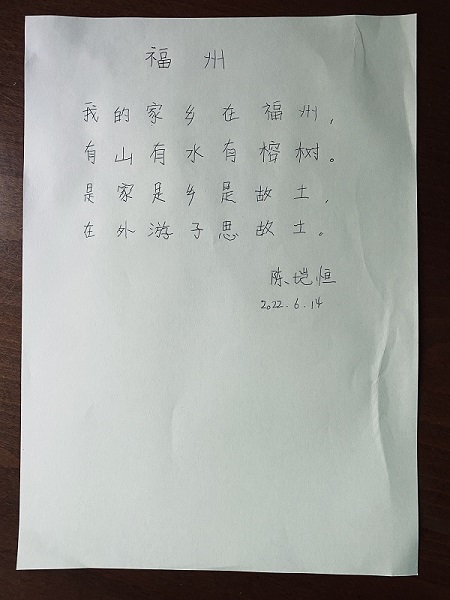 福州
我的家乡在福州，
有山有水有榕树。
是家是乡是故土，
在外游子思故土。
陈垲恒
2022.6.14